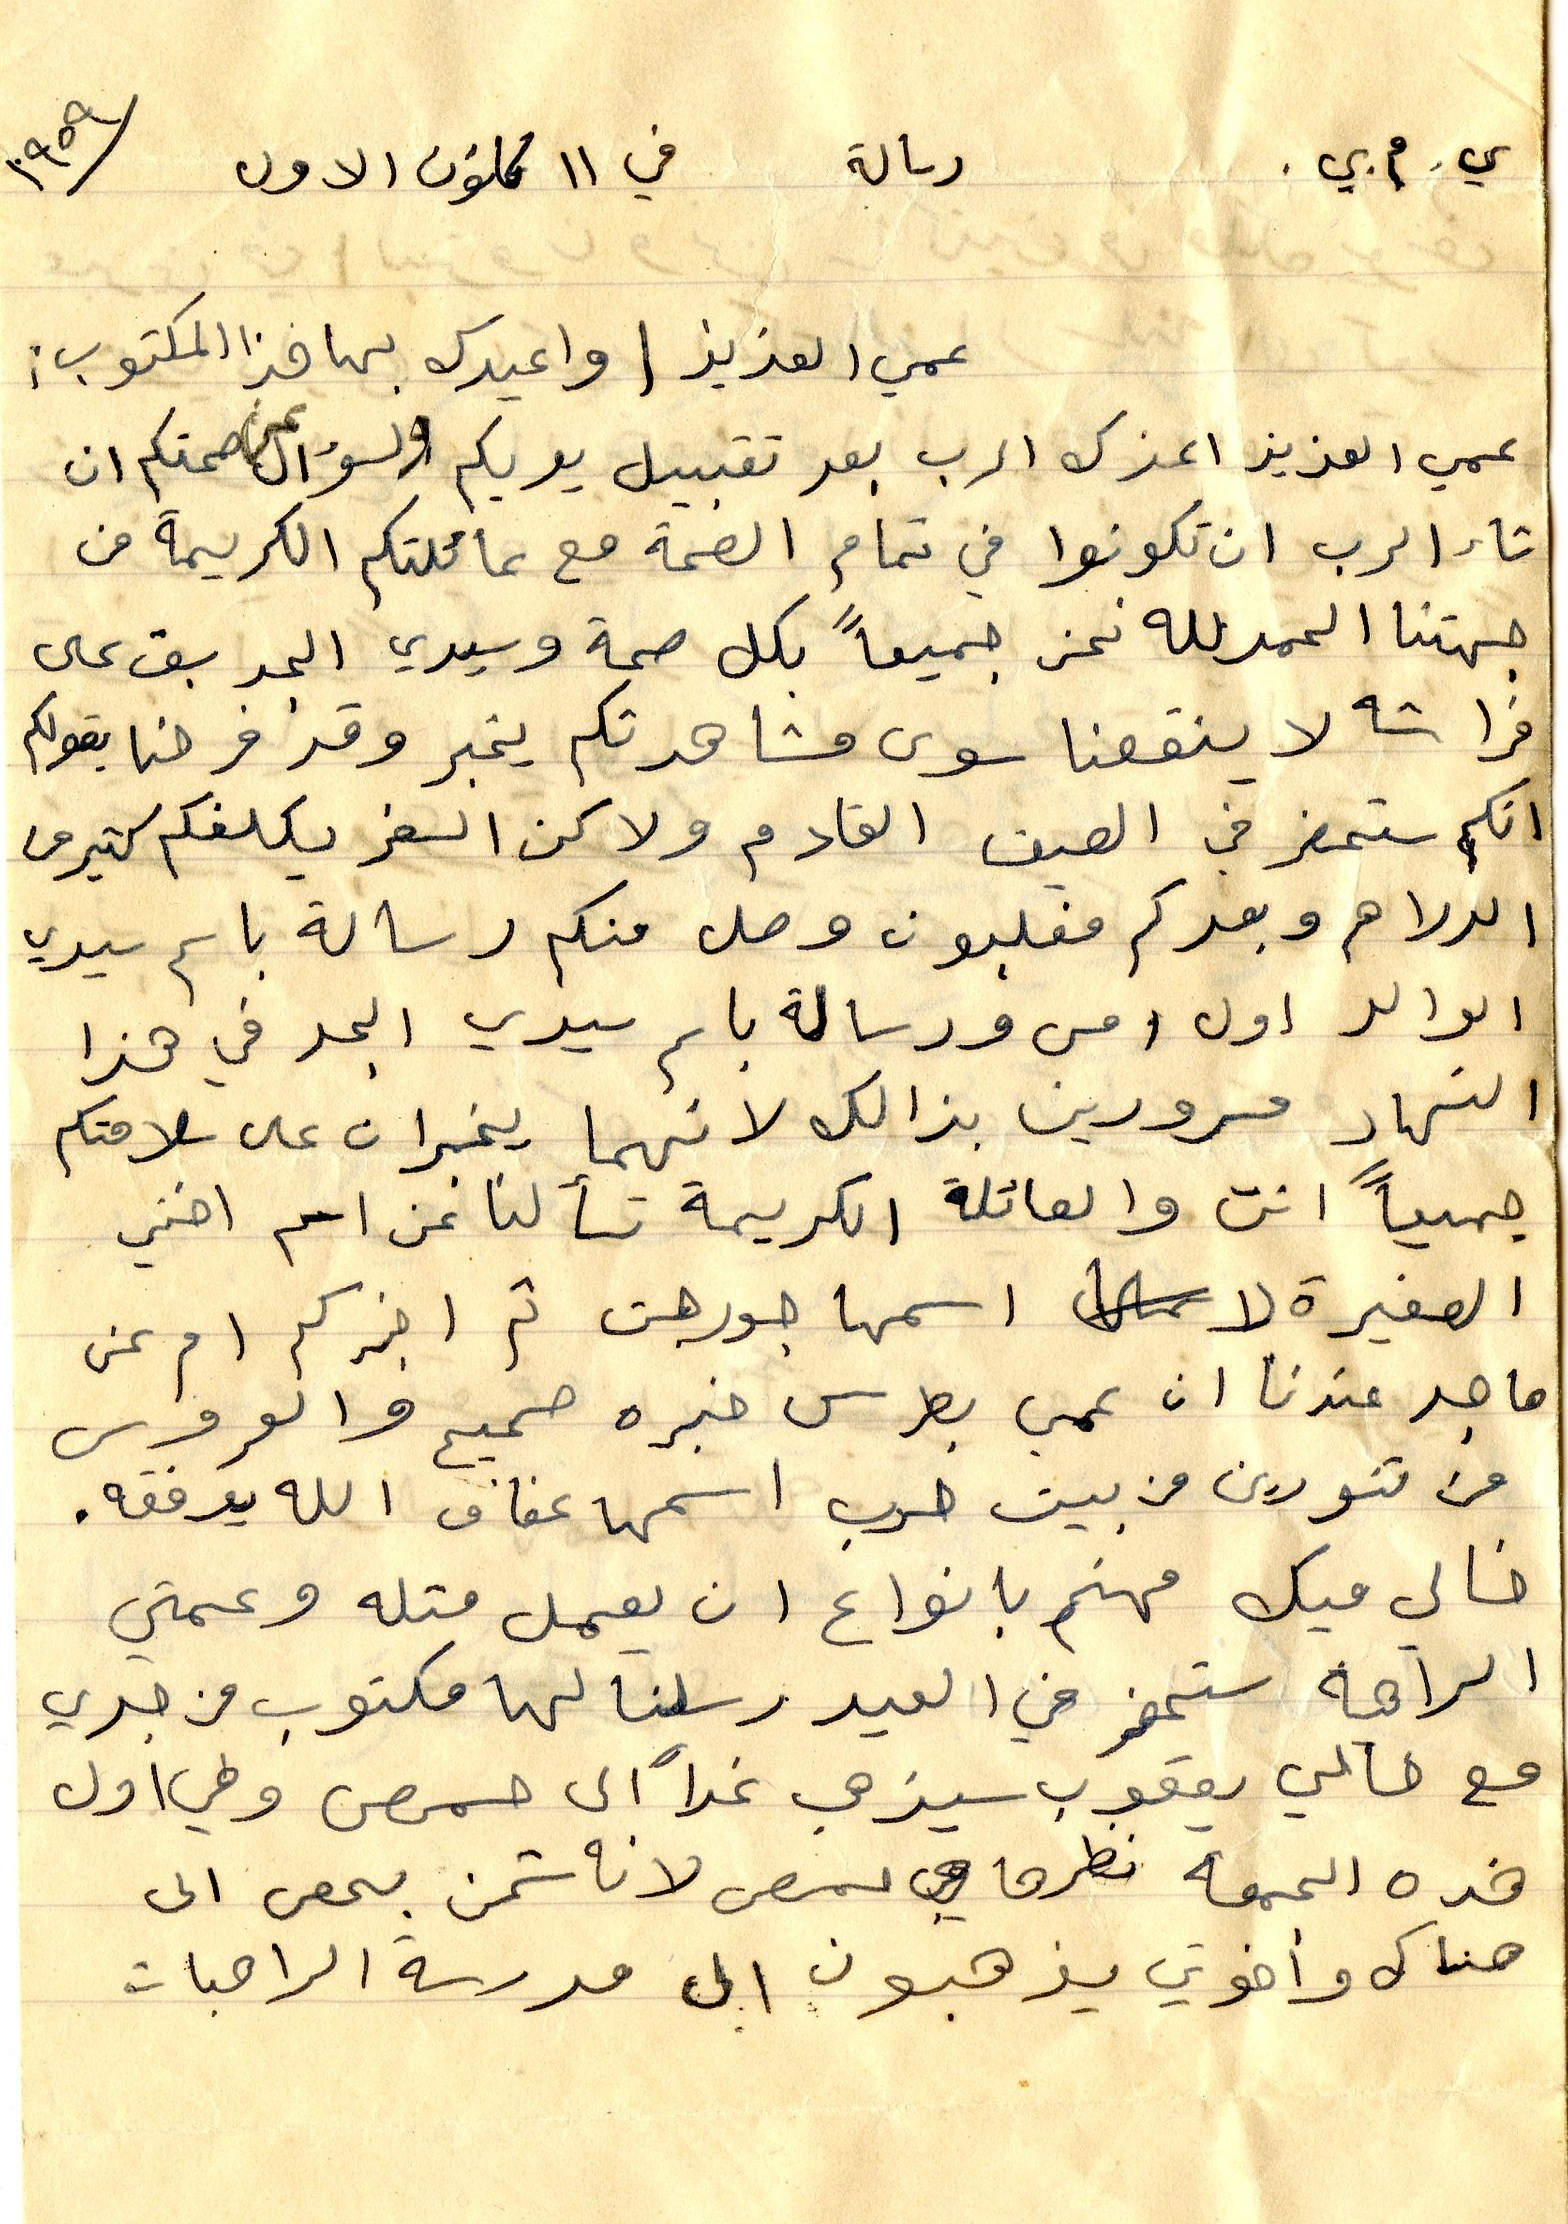 ي. م. ي. رسالة في ١١ كانون الاول ١٩٥٩
عمي العزيز واعيدك بها هذا المكتوب:
عمي العزيز اعزك الرب بعد تقبيل يديكم والسؤال عن صحتكم ان
شاء الرب ان تكونوا في تمام الصحة مع عائلتكم الكريمة من
جهتنا الحمد لله نحن جميعاً بكل صحة وسيدي الجد بق على
فراشه لا ينقصنا سوى مشاهدتكم بخير وقد فرحنا بقولكم
انكم ستحضر في الصيف القادم ولاكن السفر يكلفكم كثير من
الدراهم وبعدكم مغلبون وصل منكم رسالة باسم سيدي
الوالد اول امس ورسالة باسم سيدي الجد في هذا
النهار مسرورين بذالك لانهما يخبران على سلامتكم
جميعاً انت والعائلة الكريمة تسألنا عن اسم اختي
الصغيرة لا اسمها جورجت ثم اخبركم ام عن
ما جد عندنا ان عمي بطرس خبره صحيح والعروس
من تنورين من بيت حرب اسمها عفاف الله يوفقه.
خالي ميك مهتم بانواع ان يعمل متله وعمتي
الراهبة ستحضر في العيد رسلنا لها مكتوب من جدي
مع خالي يعقوب سيذهب غداً الى حمص وطي اول
هذه الجمعة نظرها حمص لانه شحن بحص الى
هناك وأخوتي يذهبون الى مدرسة الراهبات